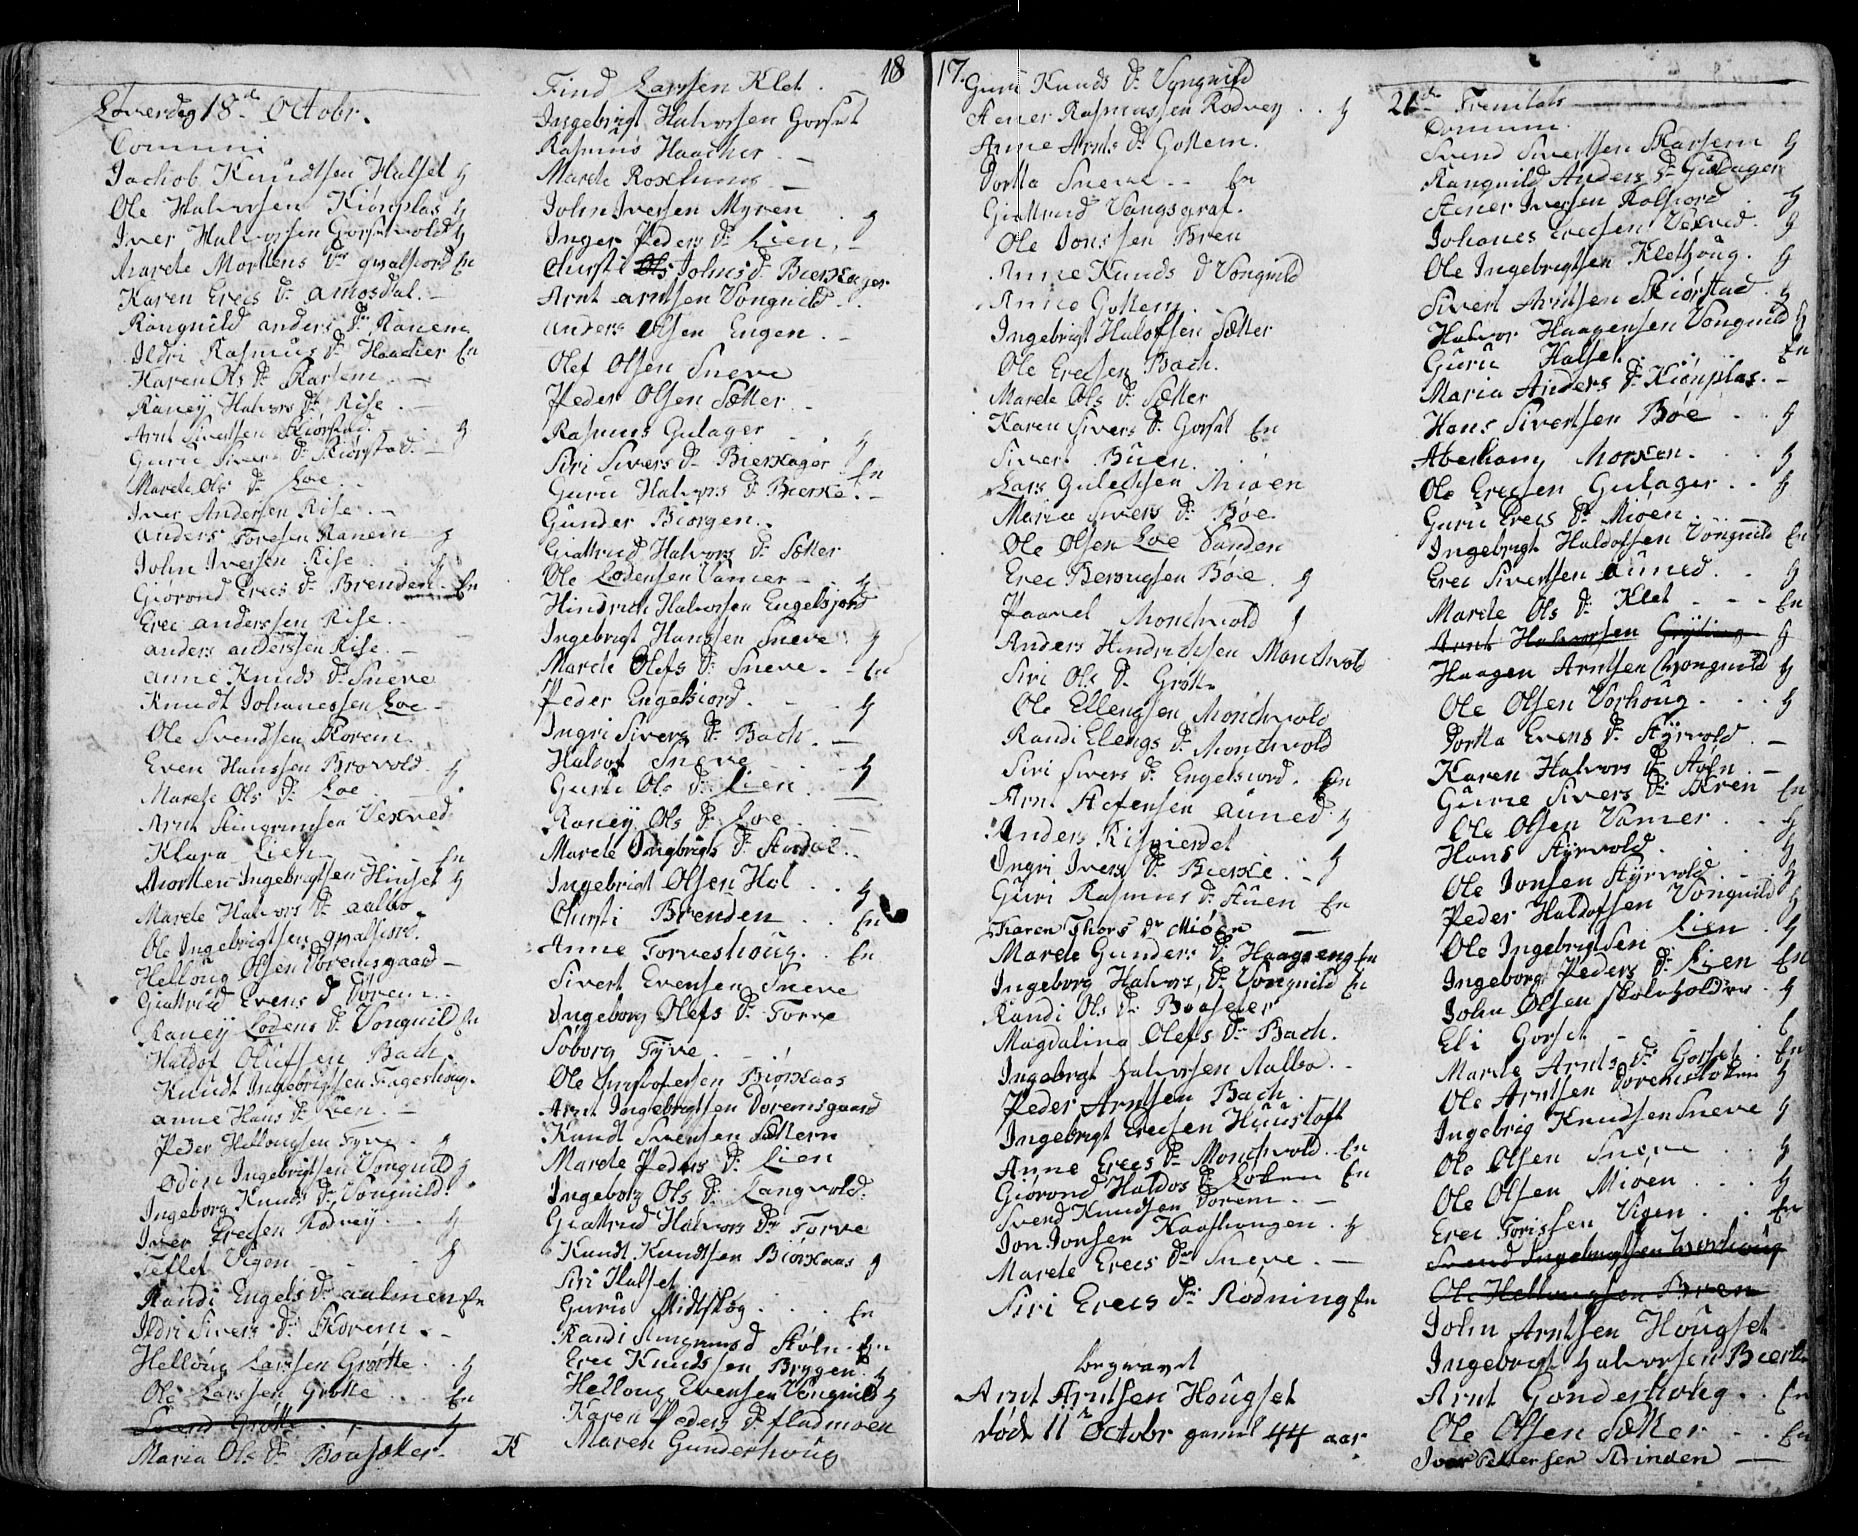 18
17.
Løverdag 18de Octobr.
Comuni
Jachob Knudtsen Halset
Ole Halvorsen Kiönplas
Iver Halvorsen Gorsetvold
Marete Mortens Dr qvalfiord En
Karen Erecs Dr amosdal. -
Ranguild anders Dr Ranem
Ildri Rasmus Dr Haacher En
Karen Ols Dr Karsem -
Raney Halvors Dr Rise . -
Arnt Sivertsen Skiörstad.
Guru Sivers Dr Skiörstad. -
Marete Ols Dr Loe
Iver Andersen Rise. -
Anders Toresen Ranem
John Iversen Rise
Giörond Erecs Dr Brenden. En
Erec anderssen Rise.
anders anderssen Rise. -
anne Knuds Dr Sneve
Knudt Johanessen Loe -
Ole Svendsen Skorem
Even Hanssen Brovold
Marete Ols Dr Loe
Arnt Steingrimsen Vexved
Klara Lien - En
Morten Ingebrigtsen Hinset
Marete Halvors Dr aalbo
Ole Ingebrigtsen qvalfiord.
Helloug Olsen Doremsgaard -
Giattrud Evens D Dorem
Raney Lodens Dr Vonguild En
Haldof Olufsen Bach.
Knudt Ingebrigtsen Fageshoug.
anne Hans Dr Lien. -
Peder Hellougsen Tyve
Odin Ingebrigtsen Vonguild
Ingeborg Knuds Dr Vonguild.
Iver Erecsen Rodvey
Tellef Vigen
Randi Engels Dr aalmen En
Ildri Sivers Dr Skorem. -
Helloug Larssen Grøtte
Ole Larssen Grøtte En
Svend Grøtte
Maria Ols Dr Bousæter -
K
Find Larssen Klet
Ingebrigt Halvorsen Gorset
Rasmus Haacher -
Marete Roxhung -
John Iversen Myren
Inger Peders Dr Lien. -
Chirsti Ols Johns D Bierkager
Arnt arntsen Vonguild
anders Olsen Engen. -
Olef Olsen Sneve
Peder Olsen Sætter -
Rasmus Gulager
Siri Sivers Dr Bierkager En
Guru Halvors Dr Bierke. -
Gunder Biorgen.
Giattrud Halvors Dr Sætter
Ole Lodensen Vamer
Hindrich Halvorsen Engelsjord
Ingebrigt Hanssen Sneve
Marete Olefs Dr Sneve - En
Peder Engelsiord
Ingri Sivers Dr Bach. -
Haldof Sneve
Guru Ols Dr Lien
Raney Ols Dr Loe
Marete Ingbrigts Dr Stordal
Ingebrigt Olsen Hol
Chirsti Brenden En
Anne Torveshoug. En
Sivert Evensen Sneve
Ingeborg Olefs Dr Torve
Söborg Tyve
Ole Chirstofersen Biörkaas
Arnt Ingebrigtsen Doremsgaard
Knudt Svensen Sættern
Marete Peders Dr Lien
Ingeborg Ols Dr Langvold.
Giattrud Halvors Dr Torve
Knudt Knudtsen Biörkaas
Siri Halset
Guru Midtskog En
Randi D Støln En
Erec Knudssen Bryggen
Helloug Evensen Vonguild
Karen Peders Dr fladmoen
Maren Gundershoug
Guru Knuds Dr Vonguild
Stener Rasmussen Rodvey
Anne Arnts Dr Gottem.
Dortta Sneve En
Giattrud Vangsgrat.
Ole Jonssen Bren
Anne Knuds D Vonguild
Anne Gottem
Ingebrigt Halofsen Sætter
Ole Erecsen Bach.
Marete Ols Dr Sætter
Karen Sivers Dr Gorset En
Siver Buen
Lars Gulechsen Mioen
Maria Sivers Dr Böe
Ole Olsen Loe Sanden
Erec Berougsen Böe
Paavel Monchvold
Anders Hindrichsen Monchvold
Siri Ols Dr Grøtte
Ole Ellengsen Monchvold
Randi Elengs Dr Monchvold
Siri Sivers Dr Engelsiord. En
Arnt Stefensen auned
Anders Rismerdet
Ingri Ivers Dr Bierke
Guri Rasmus Dr Stuen En
Karen Thors Dr Miöen -
Marete Gunders Dr Haageeng En
Ingeborg Halvors Dr Vonguild En
Randi Ols Dr Boaseter
Magdalina Olefs Dr Bach.
Ingebrigt Halvorsen Aalbo. -
Peder Arntsen Bach
Ingebrigt Erecsen Huustoft
Anne Erecs Dr Monchvold En
Giörond Haldos Dr Loken En
Svend Knudsen Dorem. -
Jon Jonsen Kaashougen
Marete Erecs Dr Sneve. -
Siri Erecs Dr Rodning En
begravet
Arnt Arntsen Hougset
död 11te Octobr gamel 44 aar
21de
Comuni.
Svend Sivertsen Karsem
Ranguild Anders Dr Guldager
Stener Iversen Kalfiord
Johanes Erecsen Vexved
Ole Ingebrigtsen Klethoug.
Sivert Arntsen Skiörstad
Halvor Haagensen Vonguild
Guru Halset En
Maria Anders Dr Kiönplas. -
Hans Sivertsen Böe
Abraham Morken.
Ole Erecsen Gulager
Guru Erecs Dr Mioen. -
Ingebrigt Haldofsen Vonguild En
Erec Sivertsen auned.
Marete Ols Dr Klet En
Arnt Halvorsen Gryting
Haagen Arntsen Vonguild
Ole Olsen Vorhoug
Dortta Evens Dr Styrvold -
Karen Halvors Dr Støln -
Gurue Sivers Dr Skren En
Ole Olsen Vamer
Hans Styrvold
Ole Jonsen Styrvold
Peder Haldofsen Vonguild
Ole Ingebrigtsen Lien
Ingeborg Peders Dr Lien En
John Olsen skoleholder
Eli Gorset
Marete Arnts Dr Gorset En
Ole Arntsen Doremsloken
Ingebrig Knudsen Sneve
Ole Olsen Sneve
Ole Olsen Mioen
Erec Torissen Vigen En
Svend Ingebrigtsen Vorhoug
Ole Hellougsen Bren
John Arntsen Hougset
Ingebrigt Halvorsen Bierke
Arnt Gondershoug. En
Ole Olsen Sætter En
Iver Pettersen Rinden -